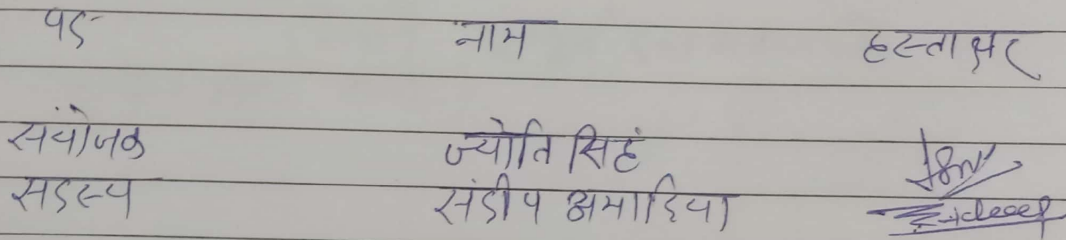 पद नाम हस्ताक्षर
संयोजक ज्योति सिहं
सदस्य संदीप अमादिया